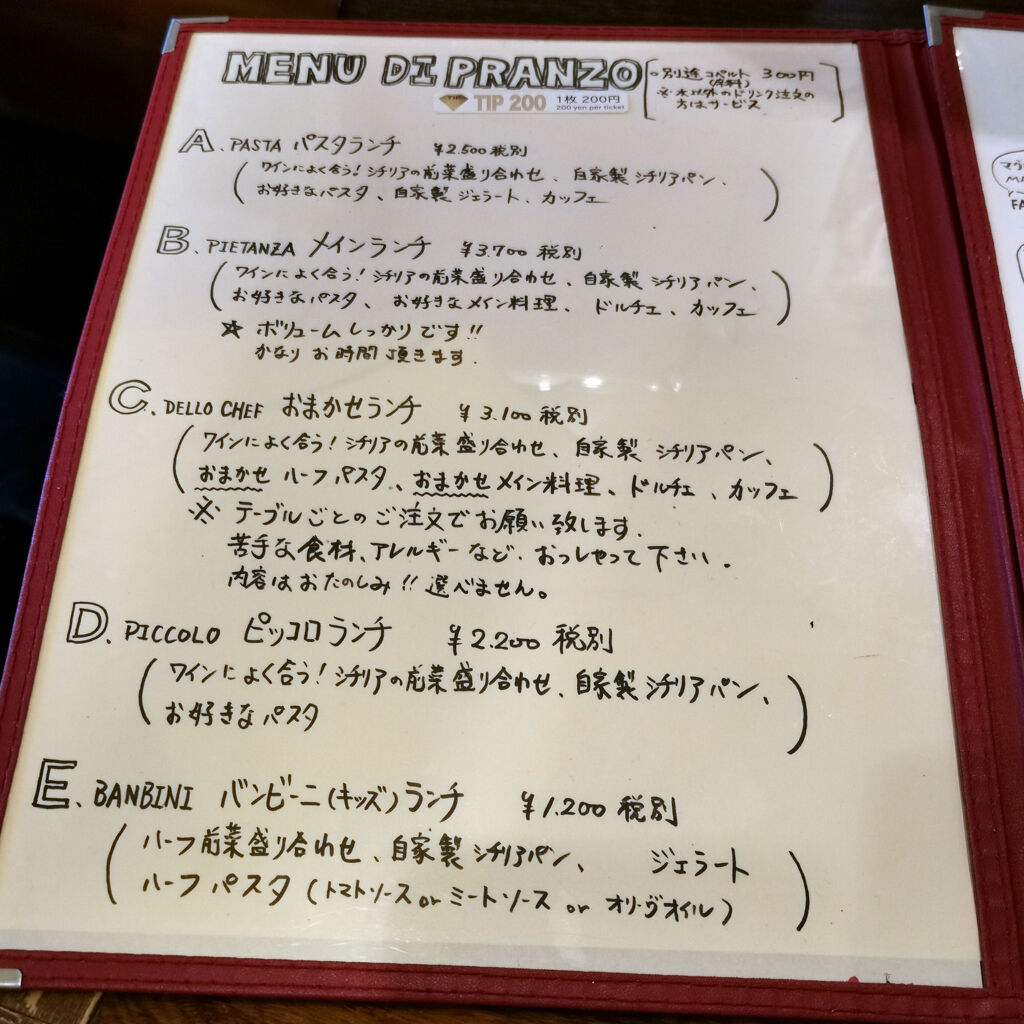 MENU DI PRANZO
。別途 コペルト 300円
(席料)
※水以外のドリンク注文の
方はサービス
TIP TIP 200 1枚 200円
200 yen per ticket
A. PASTA パスタランチ ¥2.500 税別
(ワインによく合う!シチリアの前菜盛り合わせ、自家製シチリアパン、
お好きなパスタ、自家製ジェラート、カッフェ)
B. PIETANZA メインランチ ¥3.700 税別
(ワインによく合う!シチリアの前菜盛り合わせ、自家製シチリアパン、
お好きなパスタ、お好きなメイン料理、ドルチェ、カッフェ)
☆ ボリュームしっかりです!!
かなりお時間頂きます.
C. DELLO CHEF おまかせランチ ¥3.100 税別
(ワインによく合う!シチリアの前菜盛り合わせ、自家製シチリアパン、
おまかせハーフパスタ、おまかせメイン料理、ドルチェ、カッフェ)
※ テーブルごとのご注文でお願い致します.
苦手な食材、アレルギーなど、おっしゃって下さい.
内容はおたのしみ!!選べません。
D. PICCOLO ピッコロランチ ¥2.200 税別
(ワインによく合う!シチリアの前菜盛り合わせ、自家製シチリアパン、
お好きなパスタ)
E. BANBINI バンビーニ(キッズ)ランチ ¥1.200 税別
(ハーフ前菜盛り合わせ、自家製シチリアパン、ジェラート
ハーフパスタ(トマトソース or ミートソース or オリーヴオイル))
マヴ
MA
FA